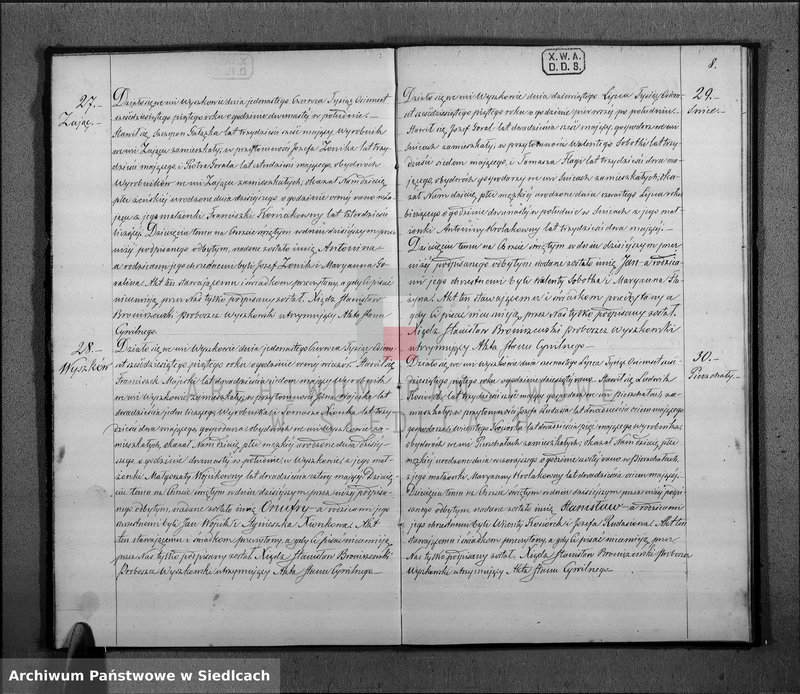 X.W.A.
D.D.S.
8.
27.
Zając.
Działo się we wsi Wyszkowie dnia jedenastego Czerwca Tysiąc Ośmset
sześćdziesiątego piątego roku o godzinie dwunastej w południe.
Stawił się Szczepan Gałązka lat trzydzieści sześć mający Wyrobnik
we wsi Zającu zamieszkały, w przytomności Józefa Zonika lat trzy-
dzieści mającego, i Piotra Gorala lat czterdzieści mającego, obydwóch
Wyrobników we wsi Zającu zamieszkałych, i okazał Nam dziecię
płci żeńskiej urodzone dnia dzisiejszego o godzinie ósmej rano w Za-
jącu z jego małżonki Franciszki lat czterdzieści
liczącej. Dziecięciu temu na Chrzcie Świętym w dniu dzisiejszym przez
niżej podpisanego odbytym, nadane zostało imię Antonina
a rodzicami jej chrzestnemi byli Józef Zonik i Maryanna Go-
ralowa. Akt ten stawającemu i świadkom przeczytany, a gdy ci pisać
nieumieją, przez Nas tylko podpisany został. Xiądz Stanisław
Broniszewski Proboszcz Wyszkowski utrzymujący Akta Stanu
Cywilnego.
28.
Wyszków
Działo się we wsi Wyszkowie dnia jedenastego Czerwca Tysiąc Ośm-
set sześćdziesiątego piątego roku o godzinie ósmej wieczór. Stawił się
Franciszek lat dwadzieścia siedem mający Wyrobnik
we wsi Wyszkowie zamieszkały, w przytomności Jana Wójcika lat
dwadzieścia jeden liczącego Wyrobnika i Tomasza Kionka lat trzy-
dzieści dwa mającego gospodarza obydwóch we wsi Wyszkowie za-
mieszkałych, okazał Nam dziecię płci męzkiej urodzone dnia dzisiej-
szego o godzinie dwunastej w południe w Wyszkowie z jego mał-
żonki Małgorzaty Wójcikowny lat dwadzieścia cztery mającej. Dziecię-
ciu temu na Chrzcie świętym w dniu dzisiejszym przez niżej podpisa-
nego odbytym, nadane zostało imię Onufry a rodzicami jego
chrzestnemi byli Jan Wójcik i Agnieszka Kionkowa. Akt
ten stawającemu i świadkom przeczytany, a gdy ci pisać nieumieją
przez Nas tylko podpisany został. Xiądz Stanisław Broniszewski
Proboszcz Wyszkowski utrzymujący Akta Stanu Cywilnego.
29.
Działo się we wsi Wyszkowie dnia dziewiątego Lipca Tysiąc Ośm-
set sześćdziesiątego piątego roku o godzinie pierwszej po południu.
Stawił się Józef Goral lat dwadzieścia sześć mający, gospodarz we wsi
zamieszkały, w przytomności Walentego Sobotki lat trzy-
dzieści siedem mającego, i Tomasza lat trzydzieści dwa ma-
jącego, obydwóch gospodarzy we wsi zamieszkałych, oka-
zał Nam dziecię płci męzkiej urodzone dnia czwartego Lipca roku
bieżącego o godzinie dwunastej w południe w z jego mał-
żonki Antoniny Krolakowny lat trzydzieści dwa mającej.
Dziecięciu temu na Chrzcie świętym w dniu dzisiejszym przez
niżej podpisanego odbytym nadane zostało imię Jan a rodzica-
mi jego chrzestnemi byli Walenty Sobotka i Maryanna
Akt ten stawającemu i świadkom przeczytany a
gdy ci pisać nieumieją, przez Nas tylko podpisany został.
Xiądz Stanisław Broniszewski Proboszcz Wyszkowski
utrzymujący Akta Stanu Cywilnego.
30.
Pierzchały.
Działo się we wsi Wyszkowie dnia Lipca Tysiąc Ośmset sześć-
dziesiątego piątego roku o godzinie dziesiątej rano. Stawił się Ludwik
lat trzydzieści sześć mający gospodarz we wsi Pierzchałach za-
mieszkały, w przytomności Józefa lat dwadzieścia ośm mającego
gospodarza i lat dwadzieścia pięć mającego wyrobnika
obydwóch we wsi Pierzchałach zamieszkałych, okazał Nam dziecię płci
męzkiej urodzone dnia wczorajszego o godzinie szóstej rano w Pierzchałach,
z jego małżonki Maryanny Krolakowny lat dwadzieścia ośm mającej.
Dziecięciu temu na Chrzcie świętym w dniu dzisiejszym przez niżej podpi-
sanego odbytym, nadane zostało imię Stanisław a rodzicami
jego chrzestnemi byli i Józefa Rudasiowa. Akt ten
stawającemu i świadkom przeczytany, a gdy ci pisać nieumieją przez
Nas tylko podpisany został. Xiądz Stanisław Broniszewski Proboszcz
Wyszkowski utrzymujący Akta Stanu Cywilnego.
Archiwum Państwowe w Siedlcach